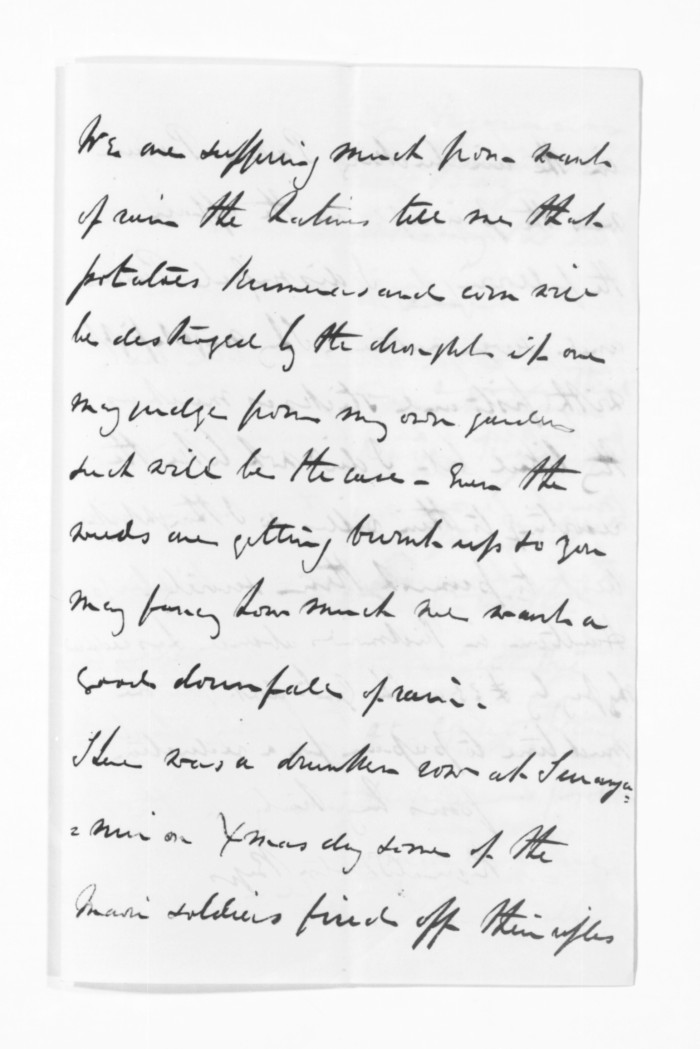 We are suffering much from want
of rain the Natives tell me that
potatoes Kumeras and corn will
be destroyed by the drought if one
may judge from my own garden
such will be the case - Even the
weeds are getting burnt up so you
may fancy how much we want a
good downfall of rain.
There was a drunken row at Turanga=
=nui on Xmas day some of the
Maori soldiers fired off their rifles